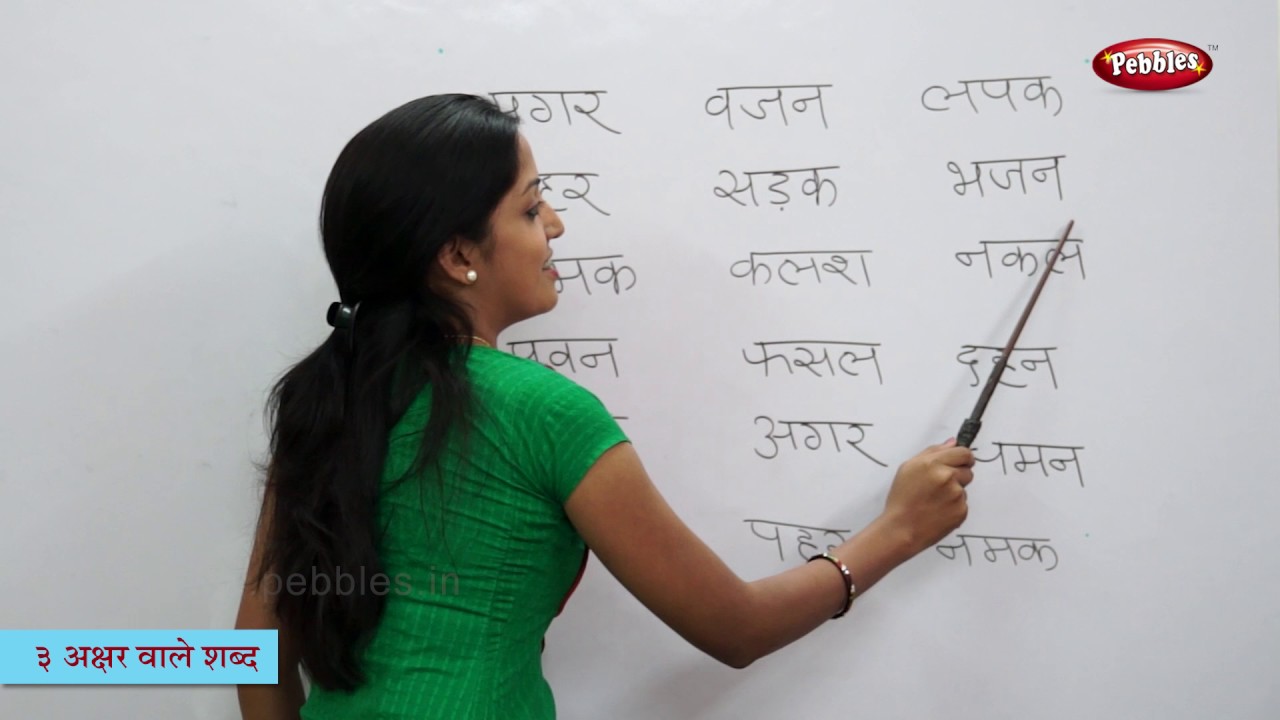 Pebbles TM
वजन लपक
सड़क भजन
कलश नकल
पवन फसल दहन
अगर चमन
पहर नमक
pebbles.in
३ अक्षर वाले शब्द